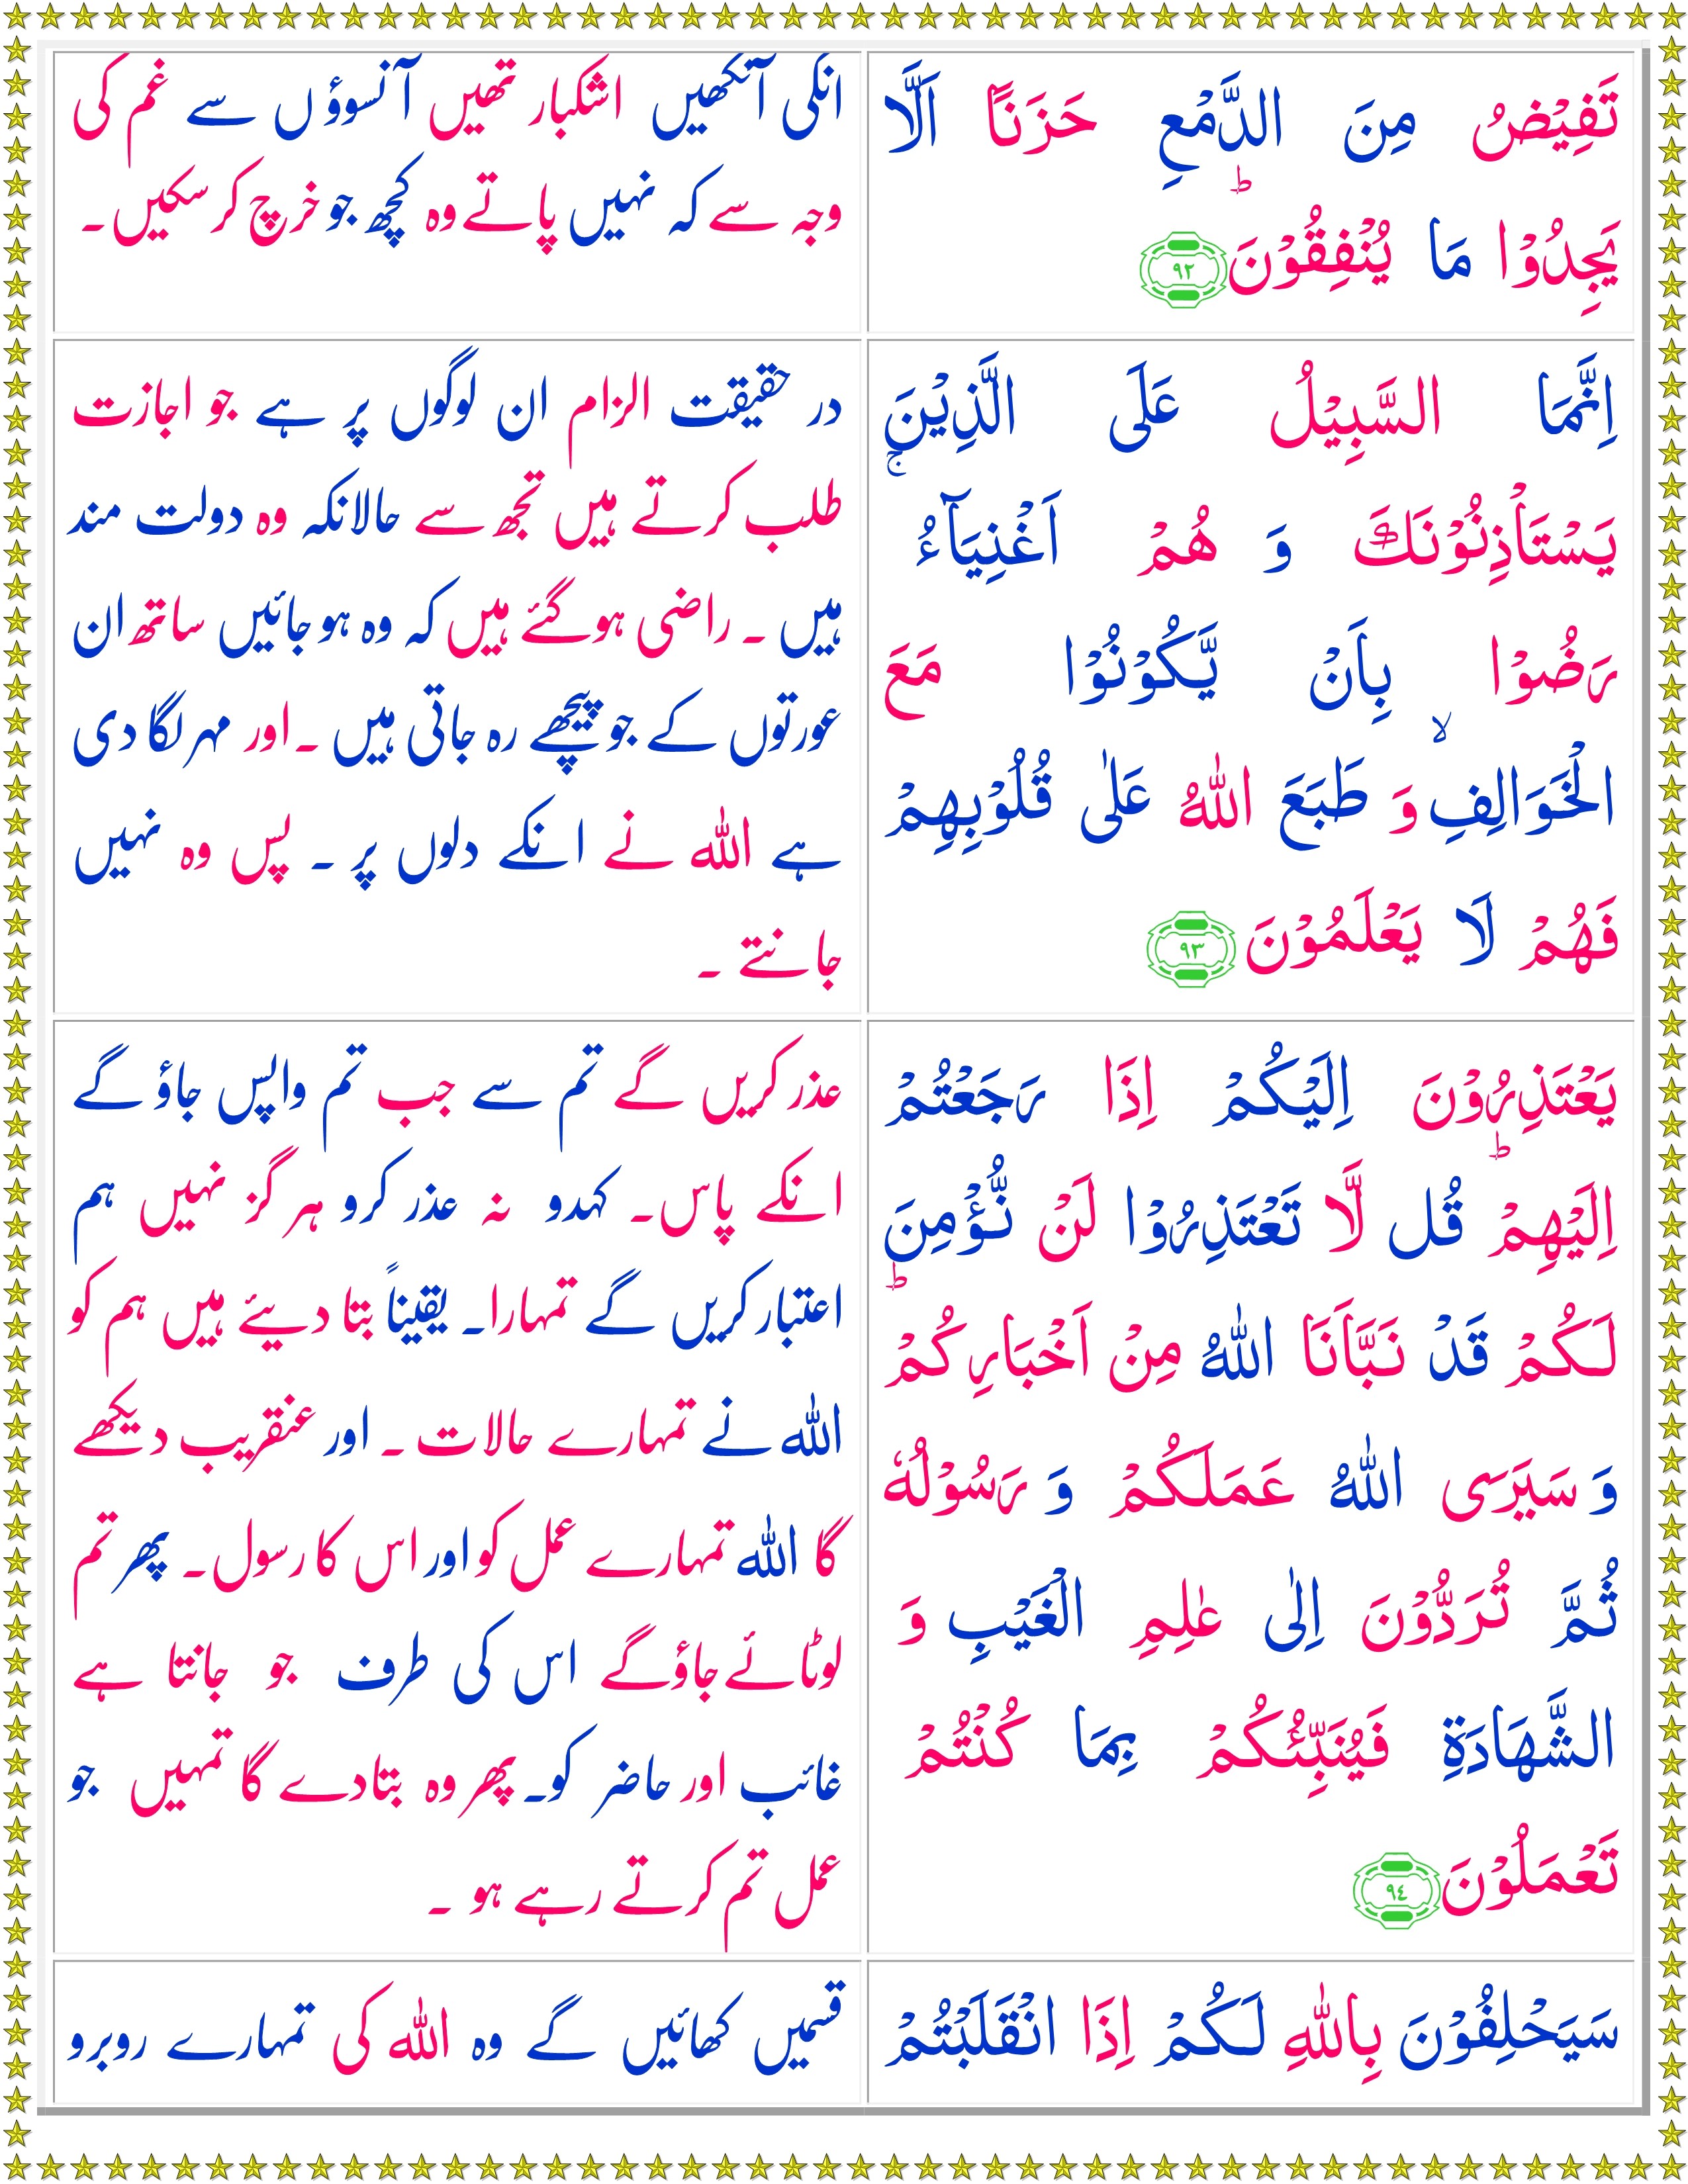 تَفِيۡضُ مِنَ الدَّمۡعِ حَزَنًا اَلَّا
يَجِدُوۡا مَا يُنۡفِقُوۡنَؕ ﴿۹۲﴾
انکی آنکھیں اشکبار تھیں آنسوؤں سے غم کی
وجہ سے کہ نہیں پاتے وہ کچھ جو خرچ کر سکیں۔
اِنَّمَا السَّبِيۡلُ عَلَى الَّذِيۡنَ
يَسۡتَاۡذِنُوۡنَكَ وَ هُمۡ اَغۡنِيَآءُۚ
رَضُوۡا بِاَنۡ يَّكُوۡنُوۡا مَعَ
الۡخَـوَالِفِۙ وَ طَبَعَ اللّٰهُ عَلٰى قُلُوۡبِهِمۡ
فَهُمۡ لَا يَعۡلَمُوۡنَ ﴿۹۳﴾
در حقیقت الزام ان لوگوں پر ہے جو اجازت
طلب کرتے ہیں تجھ سے حالانکہ وہ دولت مند
ہیں ۔ راضی ہوگئے ہیں کہ وہ ہو جائیں ساتھ ان
عورتوں کے جو پیچھے رہ جاتی ہیں ۔ اور مہر لگا دی
ہے اللہ نے انکے دلوں پر ۔ پس وہ نہیں
جانتے ۔
يَعۡتَذِرُوۡنَ اِلَيۡكُمۡ اِذَا رَجَعۡتُمۡ
اِلَيۡهِمۡؕ قُل لَّا تَعۡتَذِرُوۡا لَنۡ نُّـؤۡمِنَ
لَـكُمۡ قَدۡ نَـبَّاَنَا اللّٰهُ مِنۡ اَخۡبَارِكُمۡؕ
وَ سَيَرَى اللّٰهُ عَمَلَكُمۡ وَ رَسُوۡلُهٗ
ثُمَّ تُرَدُّوۡنَ اِلٰى عٰلِمِ الۡغَيۡبِ وَ
الشَّهَادَةِ فَيُنَبِّئُكُمۡ بِمَا كُنۡتُمۡ
تَعۡمَلُوۡنَ ﴿۹٤﴾
عذر کریں گے تم سے جب تم واپس جاؤ گے
انکے پاس۔ کہدو نہ عذر کرو ہر گز نہیں ہم
اعتبار کریں گے تمہارا۔ یقیناً بتا دیئے ہیں ہم کو
اللہ نے تمہارے حالات ۔ اور عنقریب دیکھے
گا اللہ تمہارے عمل کو اور اس کا رسول۔ پھر تم
لوٹائے جاؤ گے اس کی طرف جو جانتا ہے
غائب اور حاضر کو۔ پھر وہ بتا دے گا تمہیں جو
عمل تم کرتے رہے ہو ۔
سَيَحۡلِفُوۡنَ بِاللّٰهِ لَـكُمۡ اِذَا انْقَلَبۡتُمۡ
قسمیں کھائیں گے وہ اللہ کی تمہارے روبرو